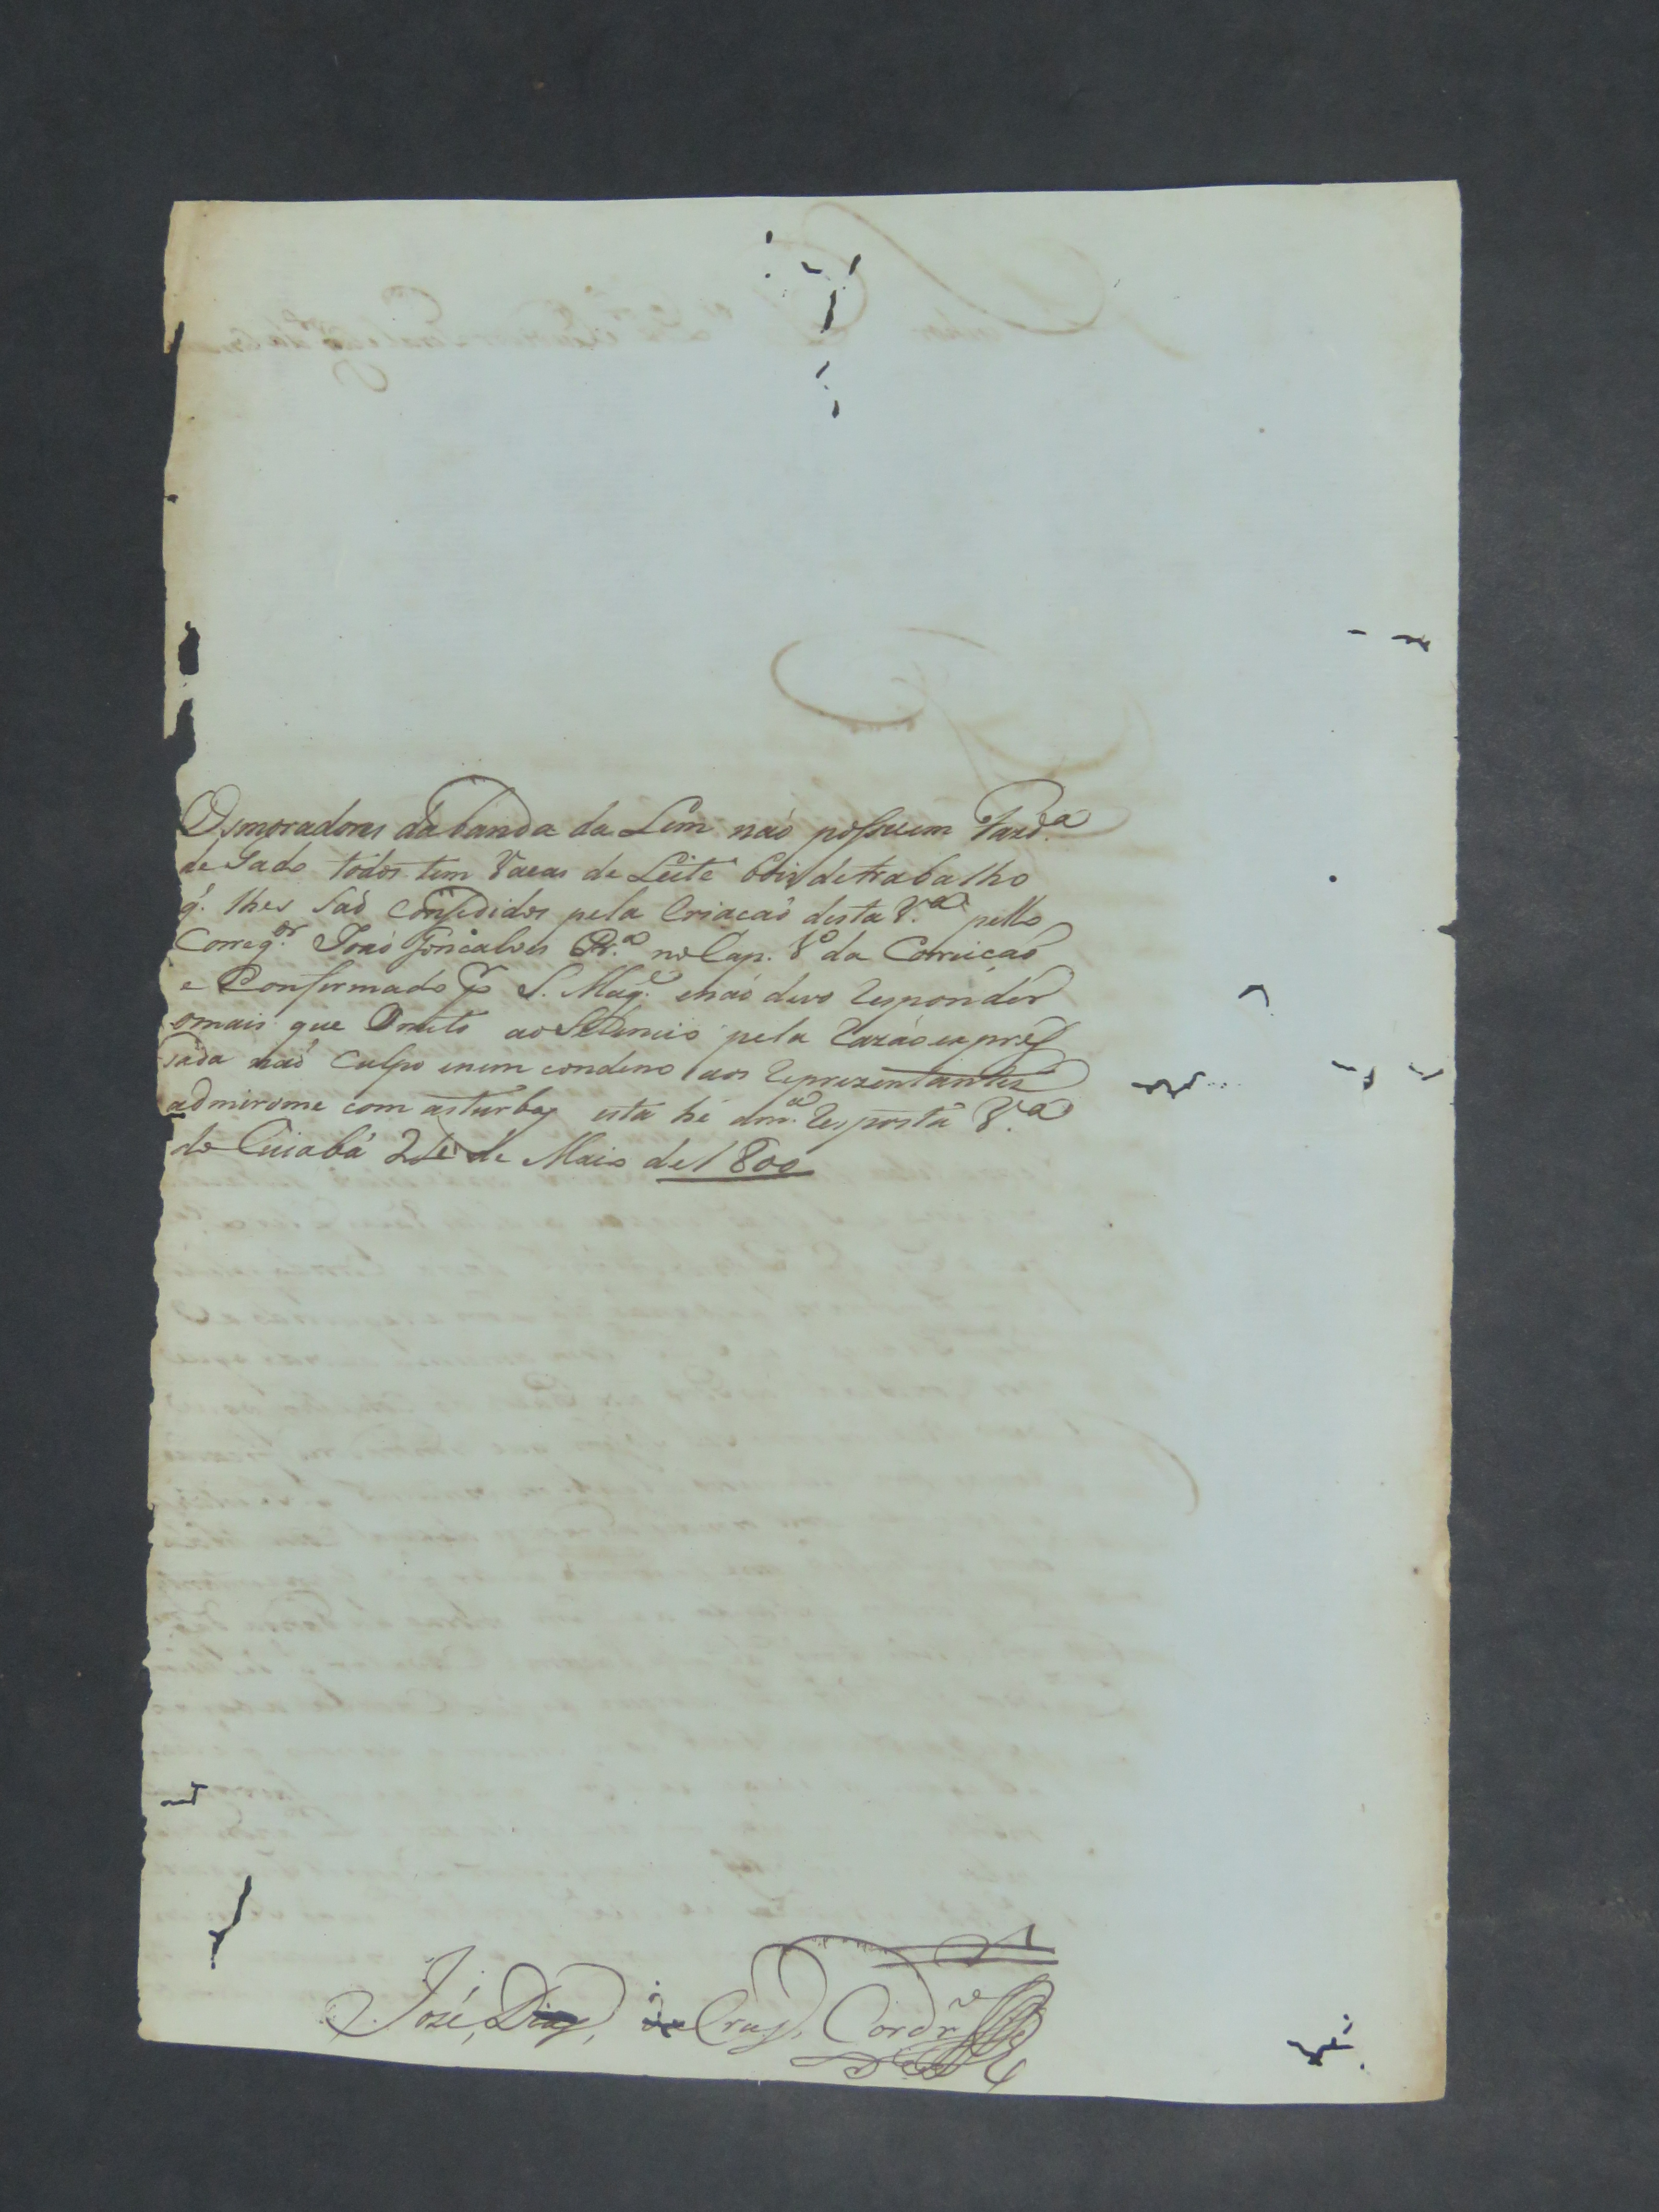 Osmoradores da banda da Lem naó possuem Fazd.a
de Gado todos tem Vacas de Leite bois detrabalho
q. lhes saó Consedidos pela Criacaó desta V.a pello
Correg.or Joaó Gonscalves Pr.a no Cap. 8o da Correicaó
e Confirmado p S. Mag.e enaó devo Responder
omais que Omito ao Silencio pela Razaó expres
sada naó Culpo enem condeno aos Reprezentantes
admirome com asturbas esta hé am.a Resposta V.a
do Cuiabá de Maio de 1800
José Dias da Cruz Cordr.o